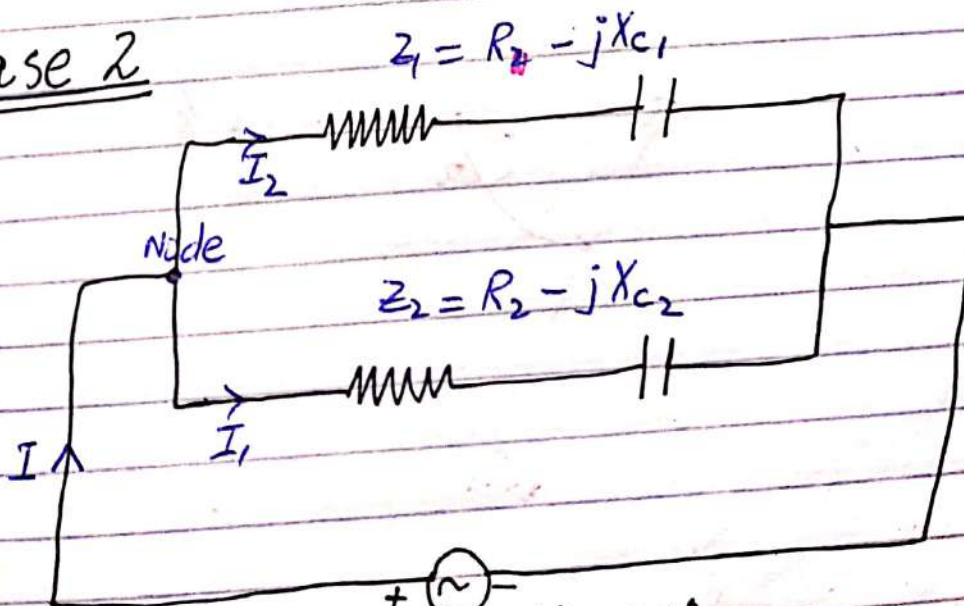 ase 2
Z₁ = R₂ - jXc₁
I₂
Node
Z₂ = R₂ - jXc₂
I₁
I
+ ~ -